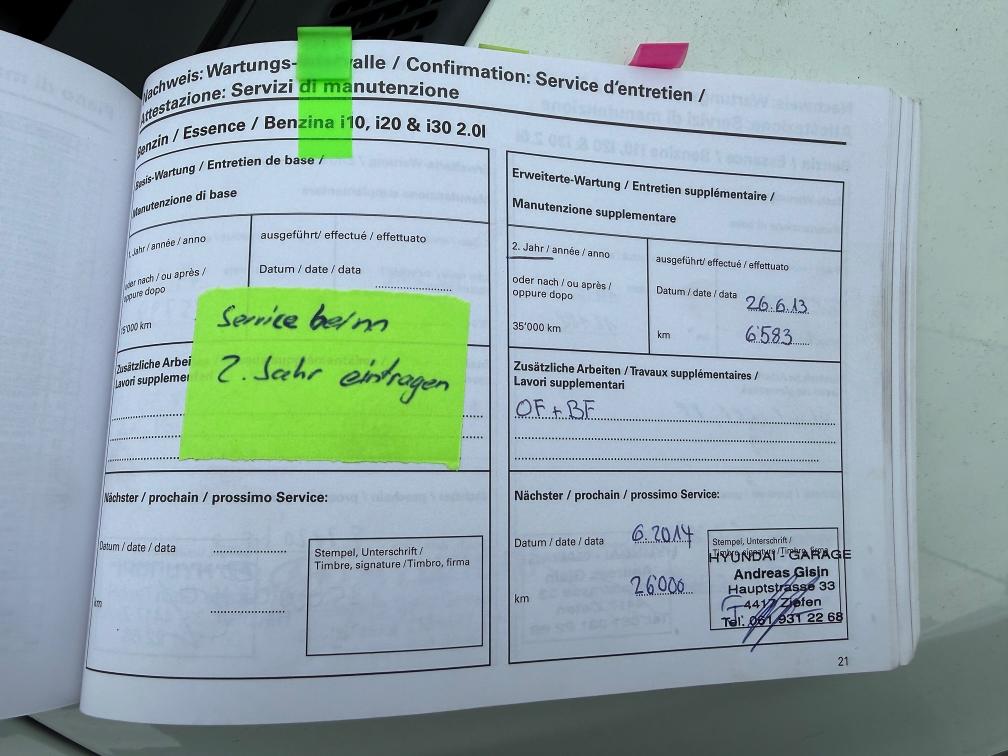 Nachweis: Wartungs-intervalle / Confirmation: Service d'entretien /
Attestazione: Servizi di manutenzione
Benzin / Essence / Benzina i10, i20 & i30 2.0l
Basis-Wartung / Entretien de base /
Manutenzione di base
1. Jahr / année / anno
ausgeführt/ effectué / effettuato
oder nach / ou après /
oppure dopo
Datum / date / data
15'000 km
Service beim
2. Jahr eintragen
Zusätzliche Arbei
Lavori supplemen
Nächster / prochain / prossimo Service:
Datum / date / data
km
Stempel, Unterschrift /
Timbre, signature /Timbro, firma
Erweiterte-Wartung / Entretien supplémentaire /
Manutenzione supplementare
2. Jahr / année / anno
ausgeführt/ effectué / effettuato
oder nach / ou après /
oppure dopo
Datum / date / data 26.6.13
35'000 km
km 6'583
Zusätzliche Arbeiten / Travaux supplémentaires /
Lavori supplementari
OF + BF
Nächster / prochain / prossimo Service:
Datum / date / data 6.2014
km 26000
Stempel, Unterschrift /
Timbre, signature /Timbro, firma
HYUNDAI - GARAGE
Andreas Gisin
Hauptstrasse 33
4417 Ziefen
Tel. 061 931 22 68
21